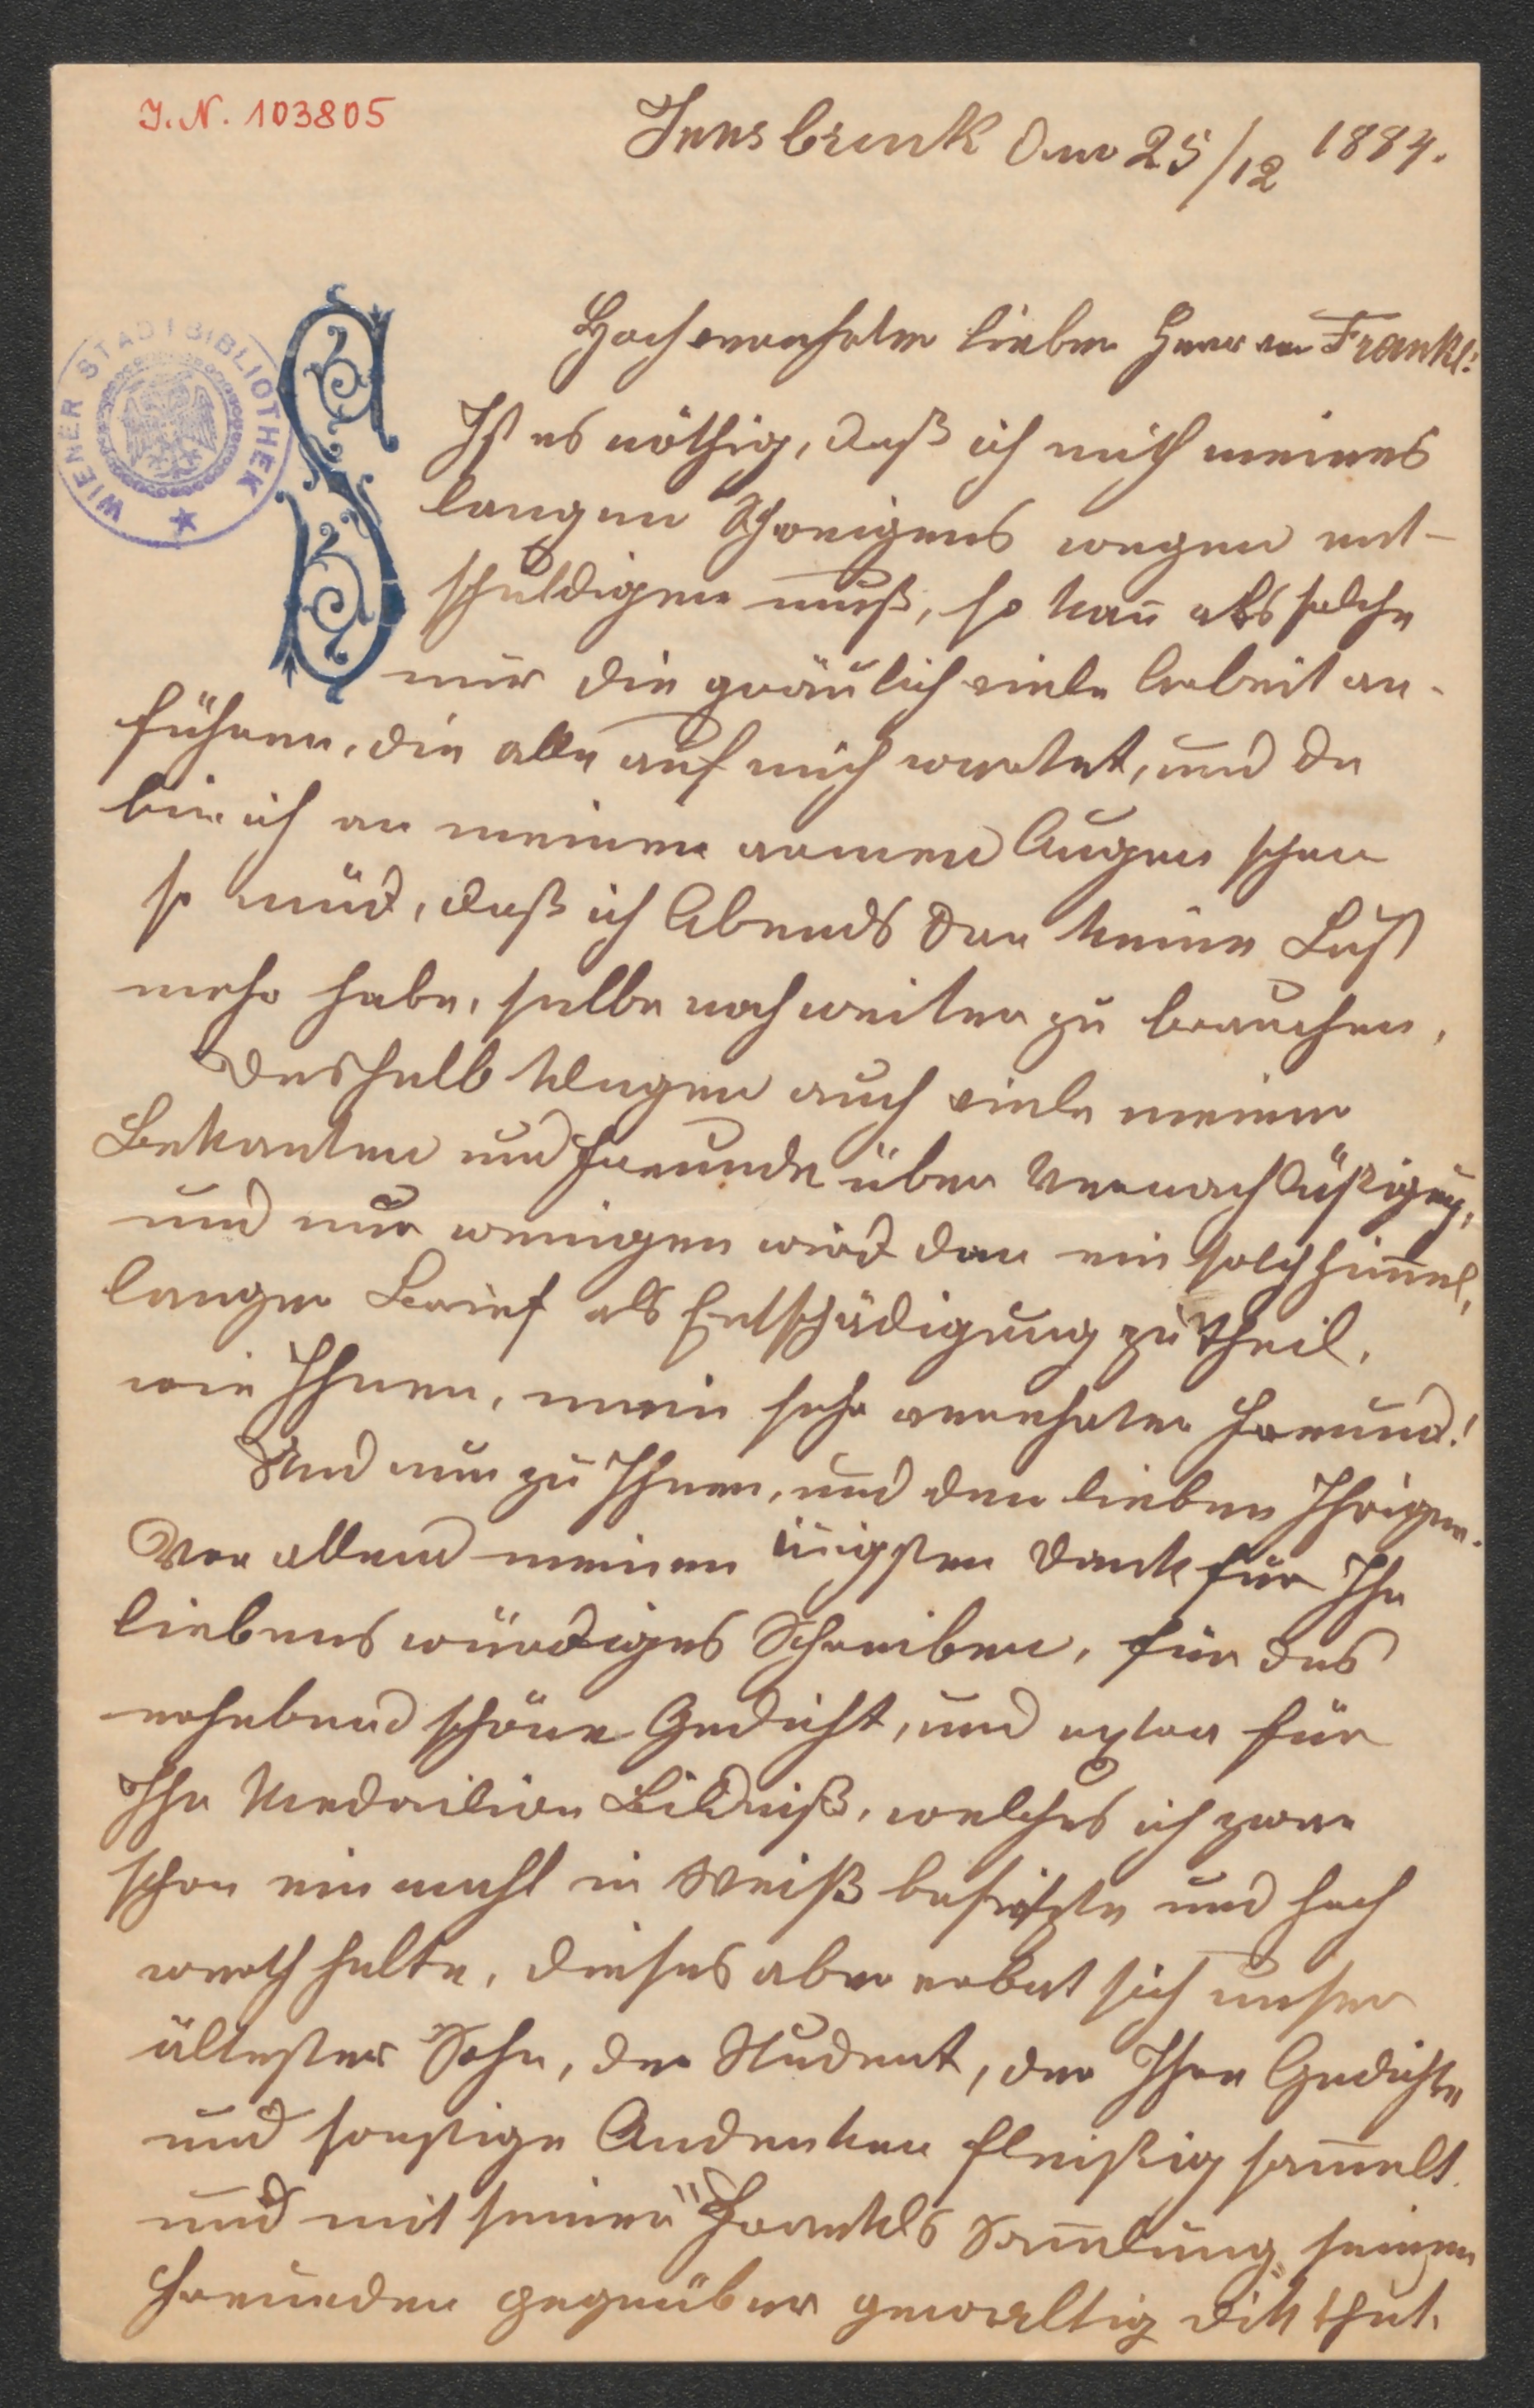 I. N. 103805
Innsbruck Am 25/12 1884.
WIENER STADTBIBLIOTHEK
Hochverehrter lieber Herr von Frankl!
Ist es nöthig, daß ich mich meines
langen Schweigens wegen ent-
schuldigen muß, so kan̄ als solche
nur die gräulich viele Arbeit an-
führen, die alle auf mich wartet, und da
bin ich an meinen armen Augen schon
so müd, daß ich Abends dan keine Lust
mehr habe, selbe noch weiter zu brauchen,
Deshalb klagen auch viele meiner
Bekanten und Freunde über Vernachläßigung,
und nur wenigen wird dan ein solch him̄el,
langer Brief als Entschädigung zu theil,
wie Ihnen, mein sehr verehrter Freund!
Und nun zu Ihnen, und den lieben Ihrigen.
Vor allem meinen in̄igsten Dank für Ihr
liebenswürdiges Schreiben, für das
erhebend schöne Gedicht, und extra für
Ihr Medailion Bildniß, welches ich zwar
schon ein mahl in Weiß besitze und hoch
werth halte, dieses aber erbat sich unser
ältester Sohn, der Student, der Ihre Gedichte
und sonstige Andenken fleißig sam̄elt.
und mit seiner "Frankls Sam̄lung" seinen
Freunden gegenüber gewaltig dik thut.